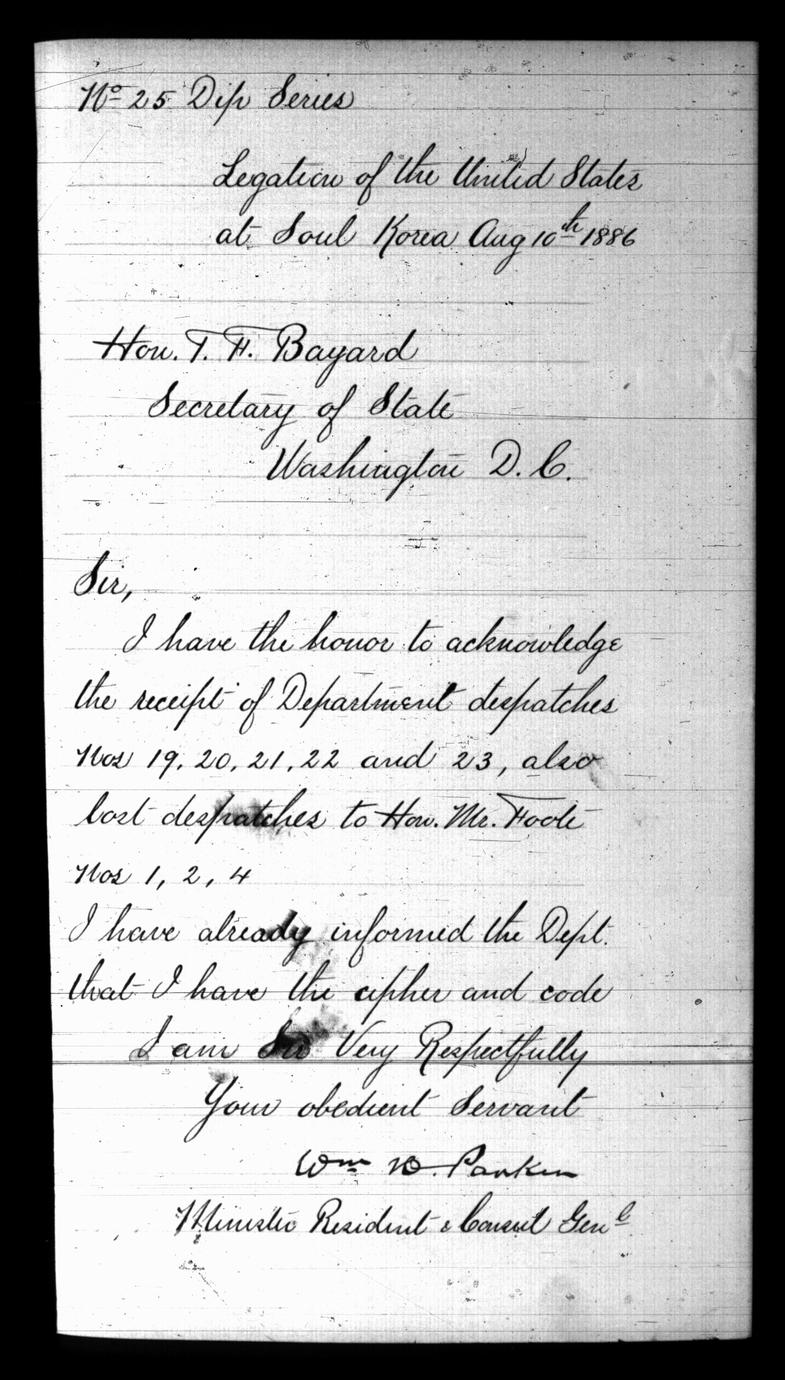 No 25 Dip Series
Legation of the United States
at Soul Korea Aug 10th 1886
Hon. T. F. Bayard
Secretary of State
Washington D. C.
Sir,
I have the honor to acknowledge
the receipt of Department despatches
Nos 19, 20, 21, 22 and 23, also
lost despatches to Hon. Mr. Foote
Nos 1, 2, 4
I have already informed the Dept.
that I have the cipher and code
I am Sir Very Respectfully
Your obedient Servant
Wm H. Parker
Minister Resident & Consul Genl